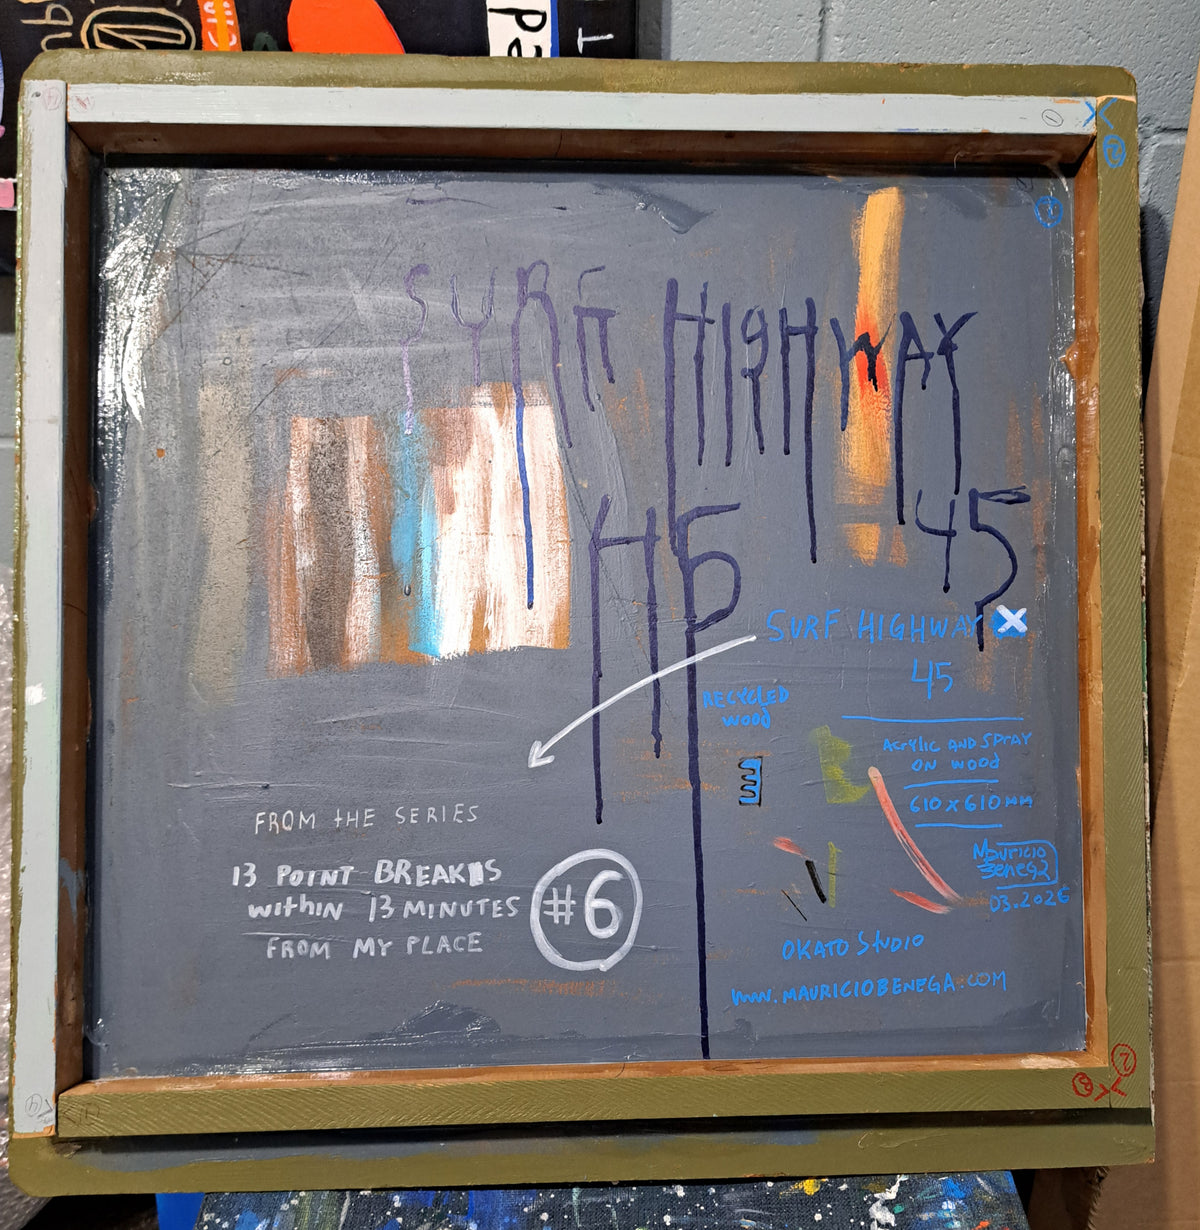 SURF HIGHWAY
45
45
SURF HIGHWAY X
45
RECYCLED
WOOD
ACRYLIC AND SPRAY
ON WOOD
610 X 610 MM
MAURICIO
BENEGA
03.2026
OKATO STUDIO
WWW.MAURICIOBENEGA.COM
FROM THE SERIES
13 POINT BREAKS
WITHIN 13 MINUTES
FROM MY PLACE
#6